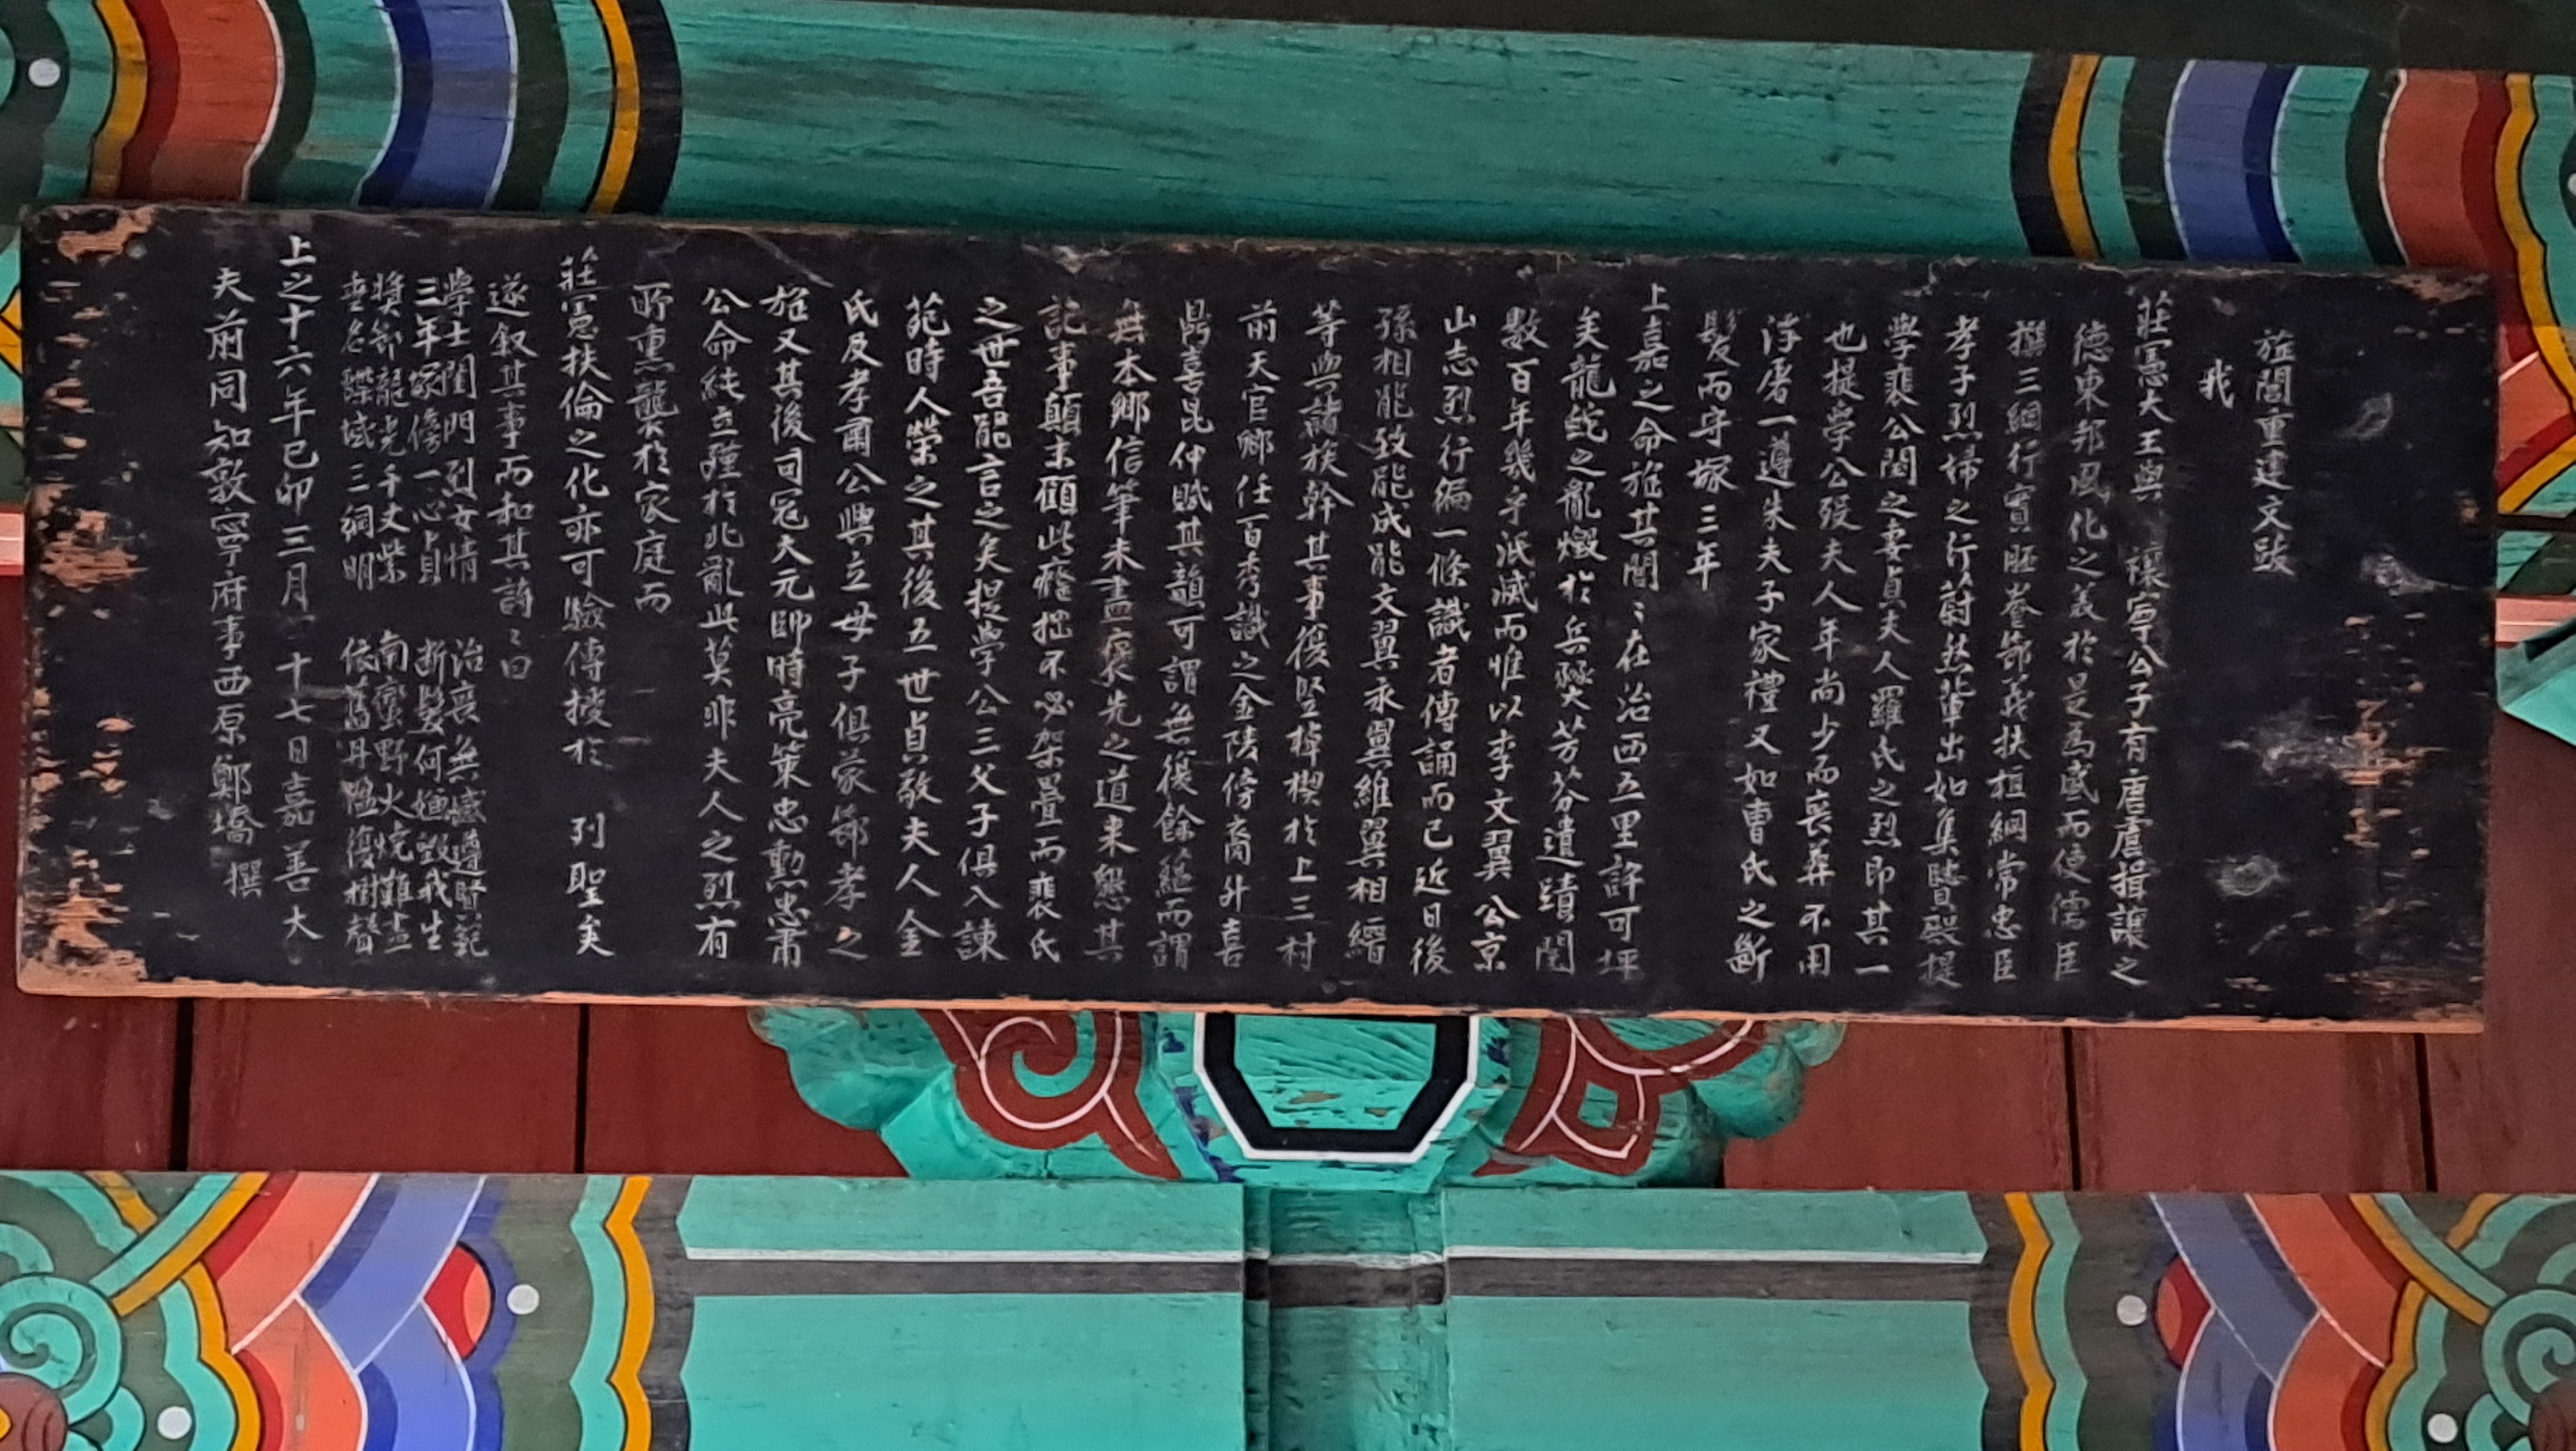 旌閭重建文跋
我
莊憲大王與 讓寧公子有唐虞揖讓之
德東邦風化之美於是爲盛而使儒臣
撰三綱行實 卷節義扶植綱常忠臣
孝子烈婦之行蔚然輩出如集賢殿提
學裵公閏之妻貞夫人羅氏之烈即其一
也提學公歿夫人年尚少而喪葬不用
浮屠一遵朱夫子家禮又如曹氏之斷
髮而守塚三年
上嘉之命旌其閭〻在治西五里許可坪
矣龍蛇之亂燬於兵燹芬芬遺蹟閱
數百年幾乎泯滅而惟以李文翼公京
山志烈行編一條識者傳誦而已近日後
孫相龍致龍成龍文翼永翼維翼相縉
等與諸族幹其事復竪棹楔於上三村
前天官鄉任百秀識之金陵傍裔外喜
昆仲賦其韻可謂無復餘縕而謂
無本鄉信筆未盡褒先之道来懇其
記事顛末顧此癃拙不必架疊而裵氏
之世吾能言之矣提學公三父子俱入諫
苑時人榮之其後五世貞敬夫人金
氏及孝甫公興立母子俱蒙節孝之
旌又其後司寇大元帥時亮策忠勳忠肅
公命純立殣於北亂此莫非夫人之烈有
所熏襲於家庭而
莊憲扶倫之化亦可驗傳授於 列聖矣
遂叙其事而和其詩〻曰
學士閨門烈女情 治喪無憾遵賢範
三年塚傍一心貞 斷髮何 毀我生
獎節龍光千丈紫 南蠻野火燒難盡
域三綱明 依舊井 復樹聲
上之十六年己卯三月 十七日嘉善大
夫前同知敦寧府事西原鄭墧撰